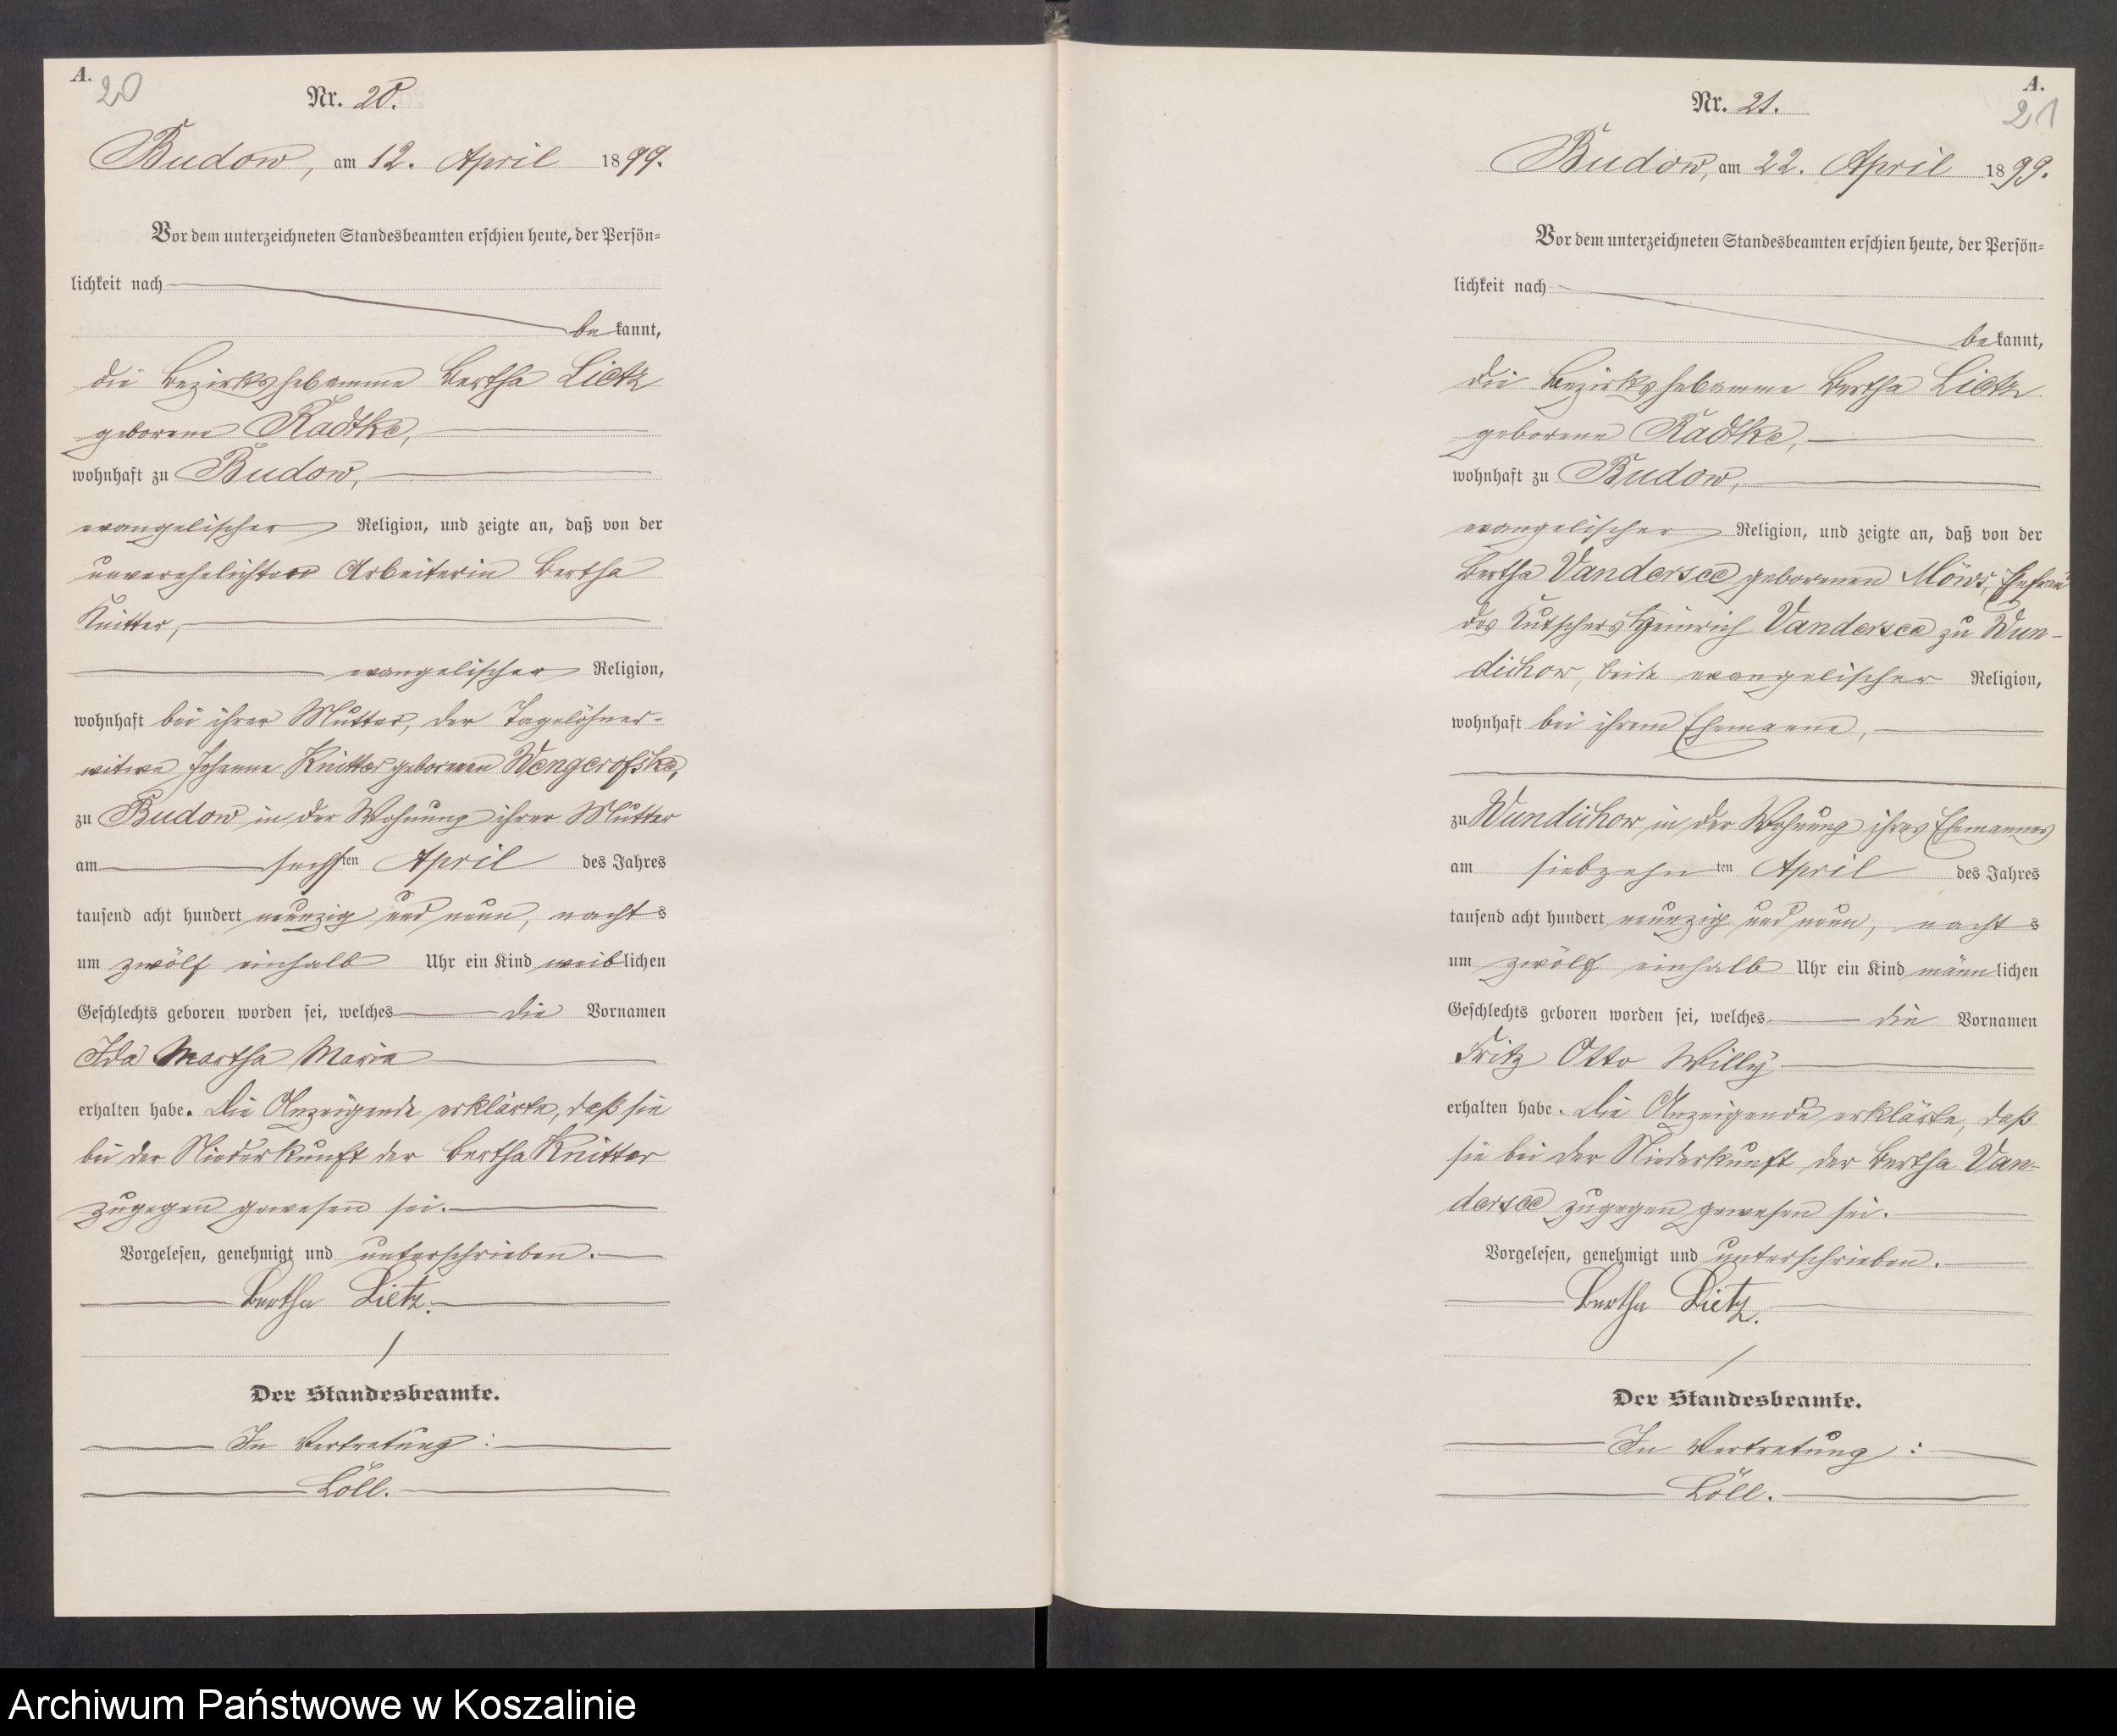 A.
20
Nr. 20.
Budow, am 12. April 1899.
Vor dem unterzeichneten Standesbeamten erschien heute, der Persön-
lichkeit nach
bekannt,
die Bezirkshebamme Bertha Lietz
geborene Radtke,
wohnhaft zu Budow,
evangelischer Religion, und zeigte an, daß von der
unverehelichten Arbeiterin Bertha
Knitter,
evangelischer Religion,
wohnhaft bei ihrer Mutter, der Tagelöhner-
witwe Johanne Knitter geborenen Wengerofske,
zu Budow in der Wohnung ihrer Mutter
am sechsten April des Jahres
tausend acht hundert neunzig und neun, nachts
um zwölf einhalb Uhr ein Kind weiblichen
Geschlechts geboren worden sei, welches die Vornamen
Ida Martha Maria
erhalten habe. Die Anzeigende erklärte, daß sie
bei der Niederkunft der Bertha Knitter
zugegen gewesen sei.
Vorgelesen, genehmigt und unterschrieben.
Bertha Lietz.
Der Standesbeamte.
In Vertretung:
Löll.
A.
21
Nr. 21.
Budow, am 22. April 1899.
Vor dem unterzeichneten Standesbeamten erschien heute, der Persön-
lichkeit nach
bekannt,
die Bezirkshebamme Bertha Lietz
geborene Radtke,
wohnhaft zu Budow,
evangelischer Religion, und zeigte an, daß von der
Bertha Vandersee geborenen Möws, Ehefrau
des Kutschers Heinrich Vandersee zu Wun-
dichow, beide evangelischer Religion,
wohnhaft bei ihrem Ehemanne,
zu Wundichow in der Wohnung ihres Ehemannes
am siebzehnten April des Jahres
tausend acht hundert neunzig und neun, nachts
um zwölf einhalb Uhr ein Kind männlichen
Geschlechts geboren worden sei, welches die Vornamen
Fritz Otto Willy
erhalten habe. Die Anzeigende erklärte, daß
sie bei der Niederkunft der Bertha Van-
dersee zugegen gewesen sei.
Vorgelesen, genehmigt und unterschrieben.
Bertha Lietz.
Der Standesbeamte.
In Vertretung:
Löll.
Archiwum Państwowe w Koszalinie